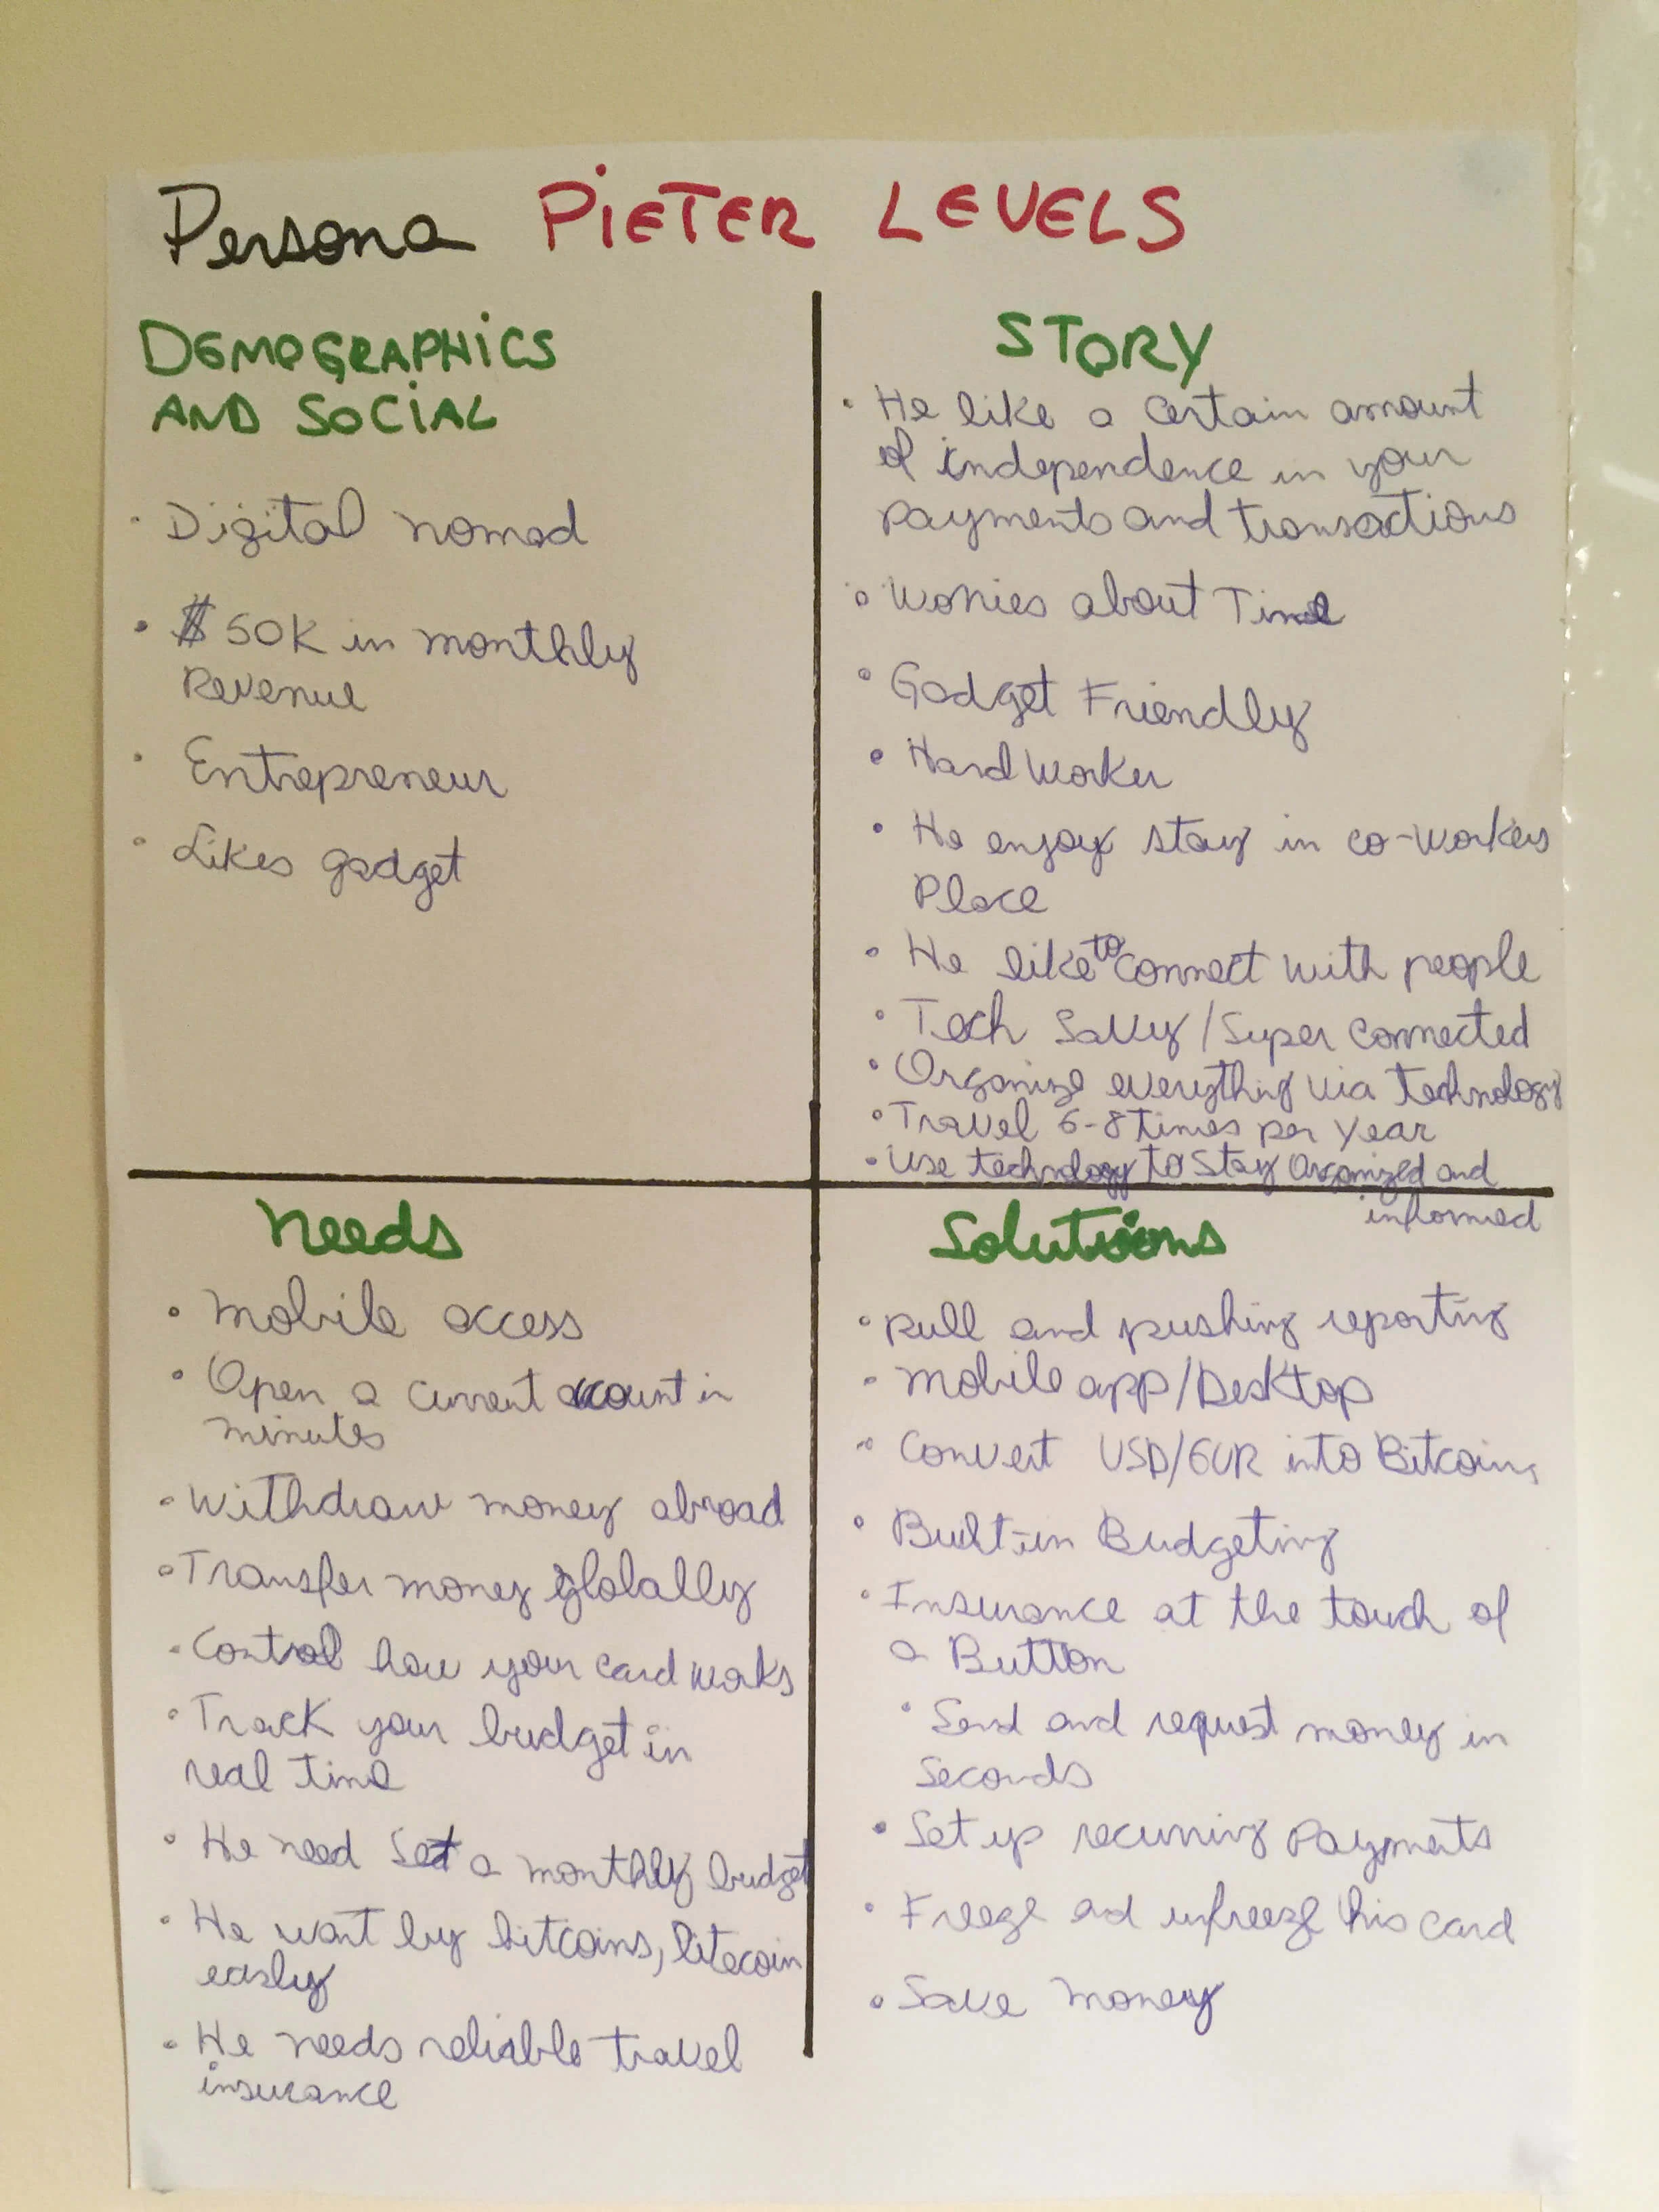 Persona PIETER LEVELS
DEMOGRAPHICS
AND SOCIAL
· Digital nomad
· $50K in monthly
Revenue
· Entrepreneur
· Likes gadget
STORY
· He like a certain amount
of independence in your
payments and transactions
· Worries about Time
· Gadget Friendly
· Hard Worker
· He enjoy stay in co-workers
Place
· He like to connect with people
· Tech Savvy / Super connected
· Organize everything via technology
· Travel 6-8 times per year
· Use technology to stay organized and
informed
Needs
· Mobile access
· Open a current account in
minutes
· Withdraw money abroad
· Transfer money globally
· Control how your card works
· Track your budget in
real time
· He need set a monthly budget
· He want by bitcoins, litecoin
easly
· He needs reliable travel
insurance
Solutions
· pull and pushing reporting
· Mobile app/Desktop
· Convert USD/EUR into Bitcoins
· Built-in Budgeting
· Insurance at the touch of
a Button
· Send and request money in
Seconds
· Set up recurring Payments
· Freeze and unfreeze his card
· Save money